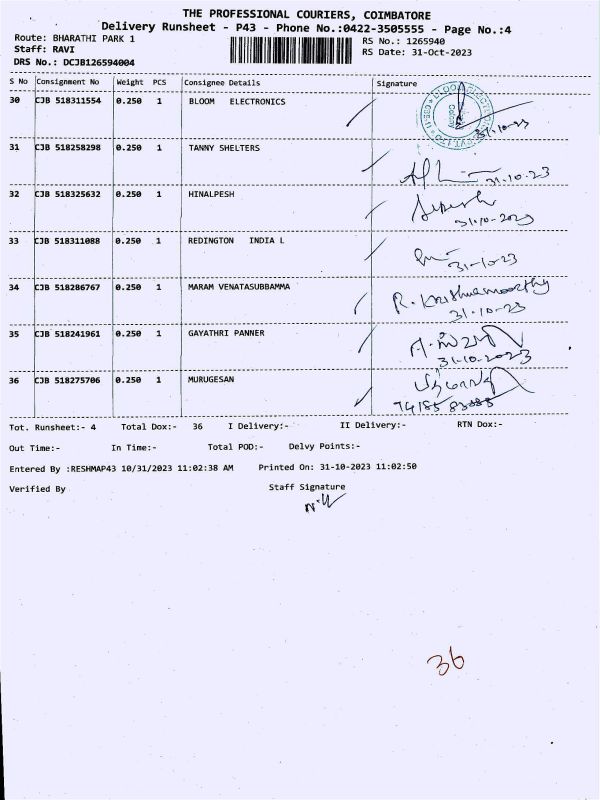 THE PROFESSIONAL COURIERS, COIMBATORE
Delivery Runsheet - P43 - Phone No.:0422-3505555 - Page No.:4
Route: BHARATHI PARK 1 RS No.: 1265940
Staff: RAVI RS Date: 31-Oct-2023
DRS No.: DCJB126594004
S No Consignment No Weight PCS Consignee Details Signature
30 CJB 518311554 0.250 1 BLOOM ELECTRONICS 31-10-23
31 CJB 518258298 0.250 1 TANNY SHELTERS 31-10-23
32 CJB 518325632 0.250 1 HINALPESH
31-10-2023
33 CJB 518311088 0.250 1 REDINGTON INDIA L 31-10-23
34 CJB 518286767 0.250 1 MARAM VENATASUBBAMMA R. Krishnamoorthy
31-10-23
35 CJB 518241961 0.250 1 GAYATHRI PANNER
31-10-2023
36 CJB 518275706 0.250 1 MURUGESAN
Tot. Runsheet:- 4 Total Dox:- 36 I Delivery:- II Delivery:- RTN Dox:-
Out Time:- In Time:- Total POD:- Delvy Points:-
Entered By :RESHMAP43 10/31/2023 11:02:38 AM Printed On: 31-10-2023 11:02:50
Verified By Staff Signature
36